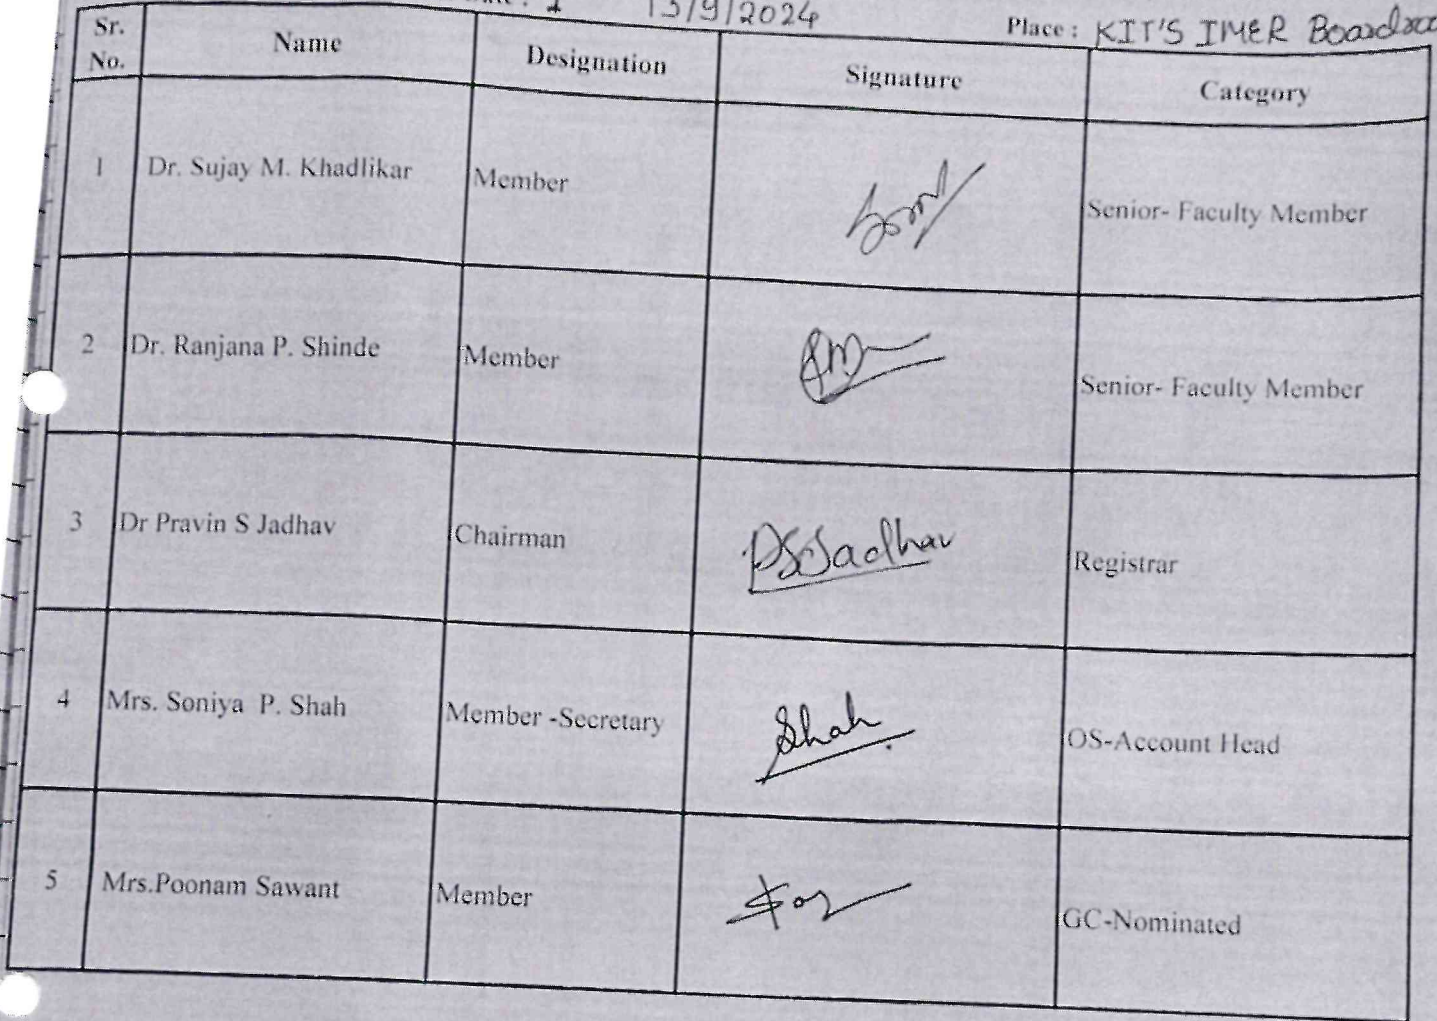 13/9/2024 Place : KIT'S IMER
Sr. No. Name Designation Signature Category
1 Dr. Sujay M. Khadlikar Member Senior- Faculty Member
2 Dr. Ranjana P. Shinde Member Senior- Faculty Member
3 Dr Pravin S Jadhav Chairman PSJadhav Registrar
4 Mrs. Soniya P. Shah Member -Secretary Shah OS-Account Head
5 Mrs.Poonam Sawant Member GC-Nominated